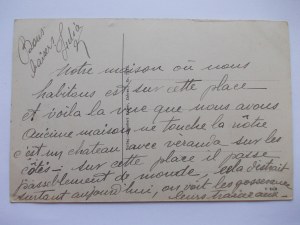 Bons
baisers
Notre maison où nous
habitons est sur cette place
et voila la vue que nous avons
aucune maison ne touche la nôtre
c'est un chateau avec veranda sur les
côtés - sur cette place il passe
passablement de monde, cela distrait
surtout aujourd'hui, on voit les
leurs